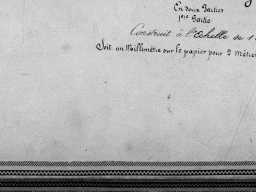 En deux Parties
1ère Partie
Construit à l'Echelle de 1
Soit un Millimètre sur le papier pour 2 Mètres